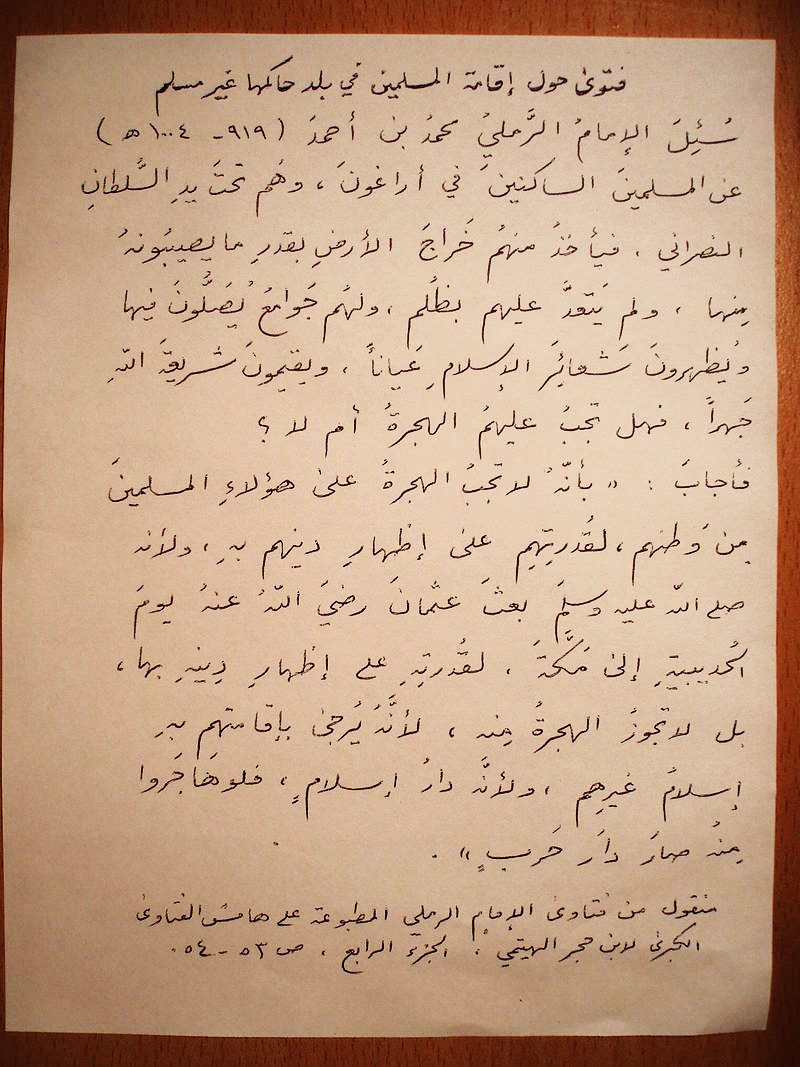 فتوى حول إقامة المسلمين في بلد حاكمها غير مسلم
سُئِلَ الإمامُ الرَّمليُ محمدُ بن أحمدَ (٩١٩ - ١٠٠٤ هـ)
عن المسلمينَ الساكنينَ في أراغونَ ، وهُم تحتَ يدِ السُّلطانِ
النصراني ، فيأخذُ منهُم خَراجَ الأرضِ بقدرِ ما يصيبُونهُ
مِنها ، ولم يَتعدَّ عليهم بظُلم ، ولهُم جَوامعُ يُصَلُّونَ فيها
ويُظهرونَ شَعائِرَ الإسلامِ عَياناً ، ويقيمونَ شريعَةَ اللهِ
جَهراً ، فهل تجبُ عليهمُ الهجرةُ أم لا ؟
فأجابَ : « بأنّهُ لا تجبُ الهجرةُ على هؤلاءِ المسلمينَ
مِن وَطنهم ، لقُدرتِهِم على إظهارِ دينهم بهِ ، ولأنه
صلى الله عليه وسلمَ بعثَ عثمانَ رضيَ اللهُ عنهُ يومَ
الحُديبيةِ إلى مَكَّةَ ، لقُدرتِهِ على إظهارِ دِينهِ بها ،
بل لا تجوزُ الهجرةُ مِنه ، لأنَّهُ يُرجى بإقامتهِم بهِ
إسلامُ غيرِهِم ، ولأنَّه دارُ إسلامٍ ، فلو هَاجَروا
مِنهُ صارَ دارَ حَربٍ » .
منقول من فتاوى الإمام الرملي المطبوعة على هامش الفتاوى
الكبرى لابن حجر الهيتمي ، الجزء الرابع ، ص ٥٣ - ٥٤ .